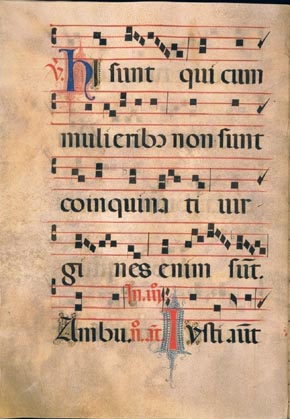 ℣. Hi sunt qui cum
mulieribꝰ non sunt
coinquina ti uir
gi nes enim sūt.
Ambu. Iusti aūt